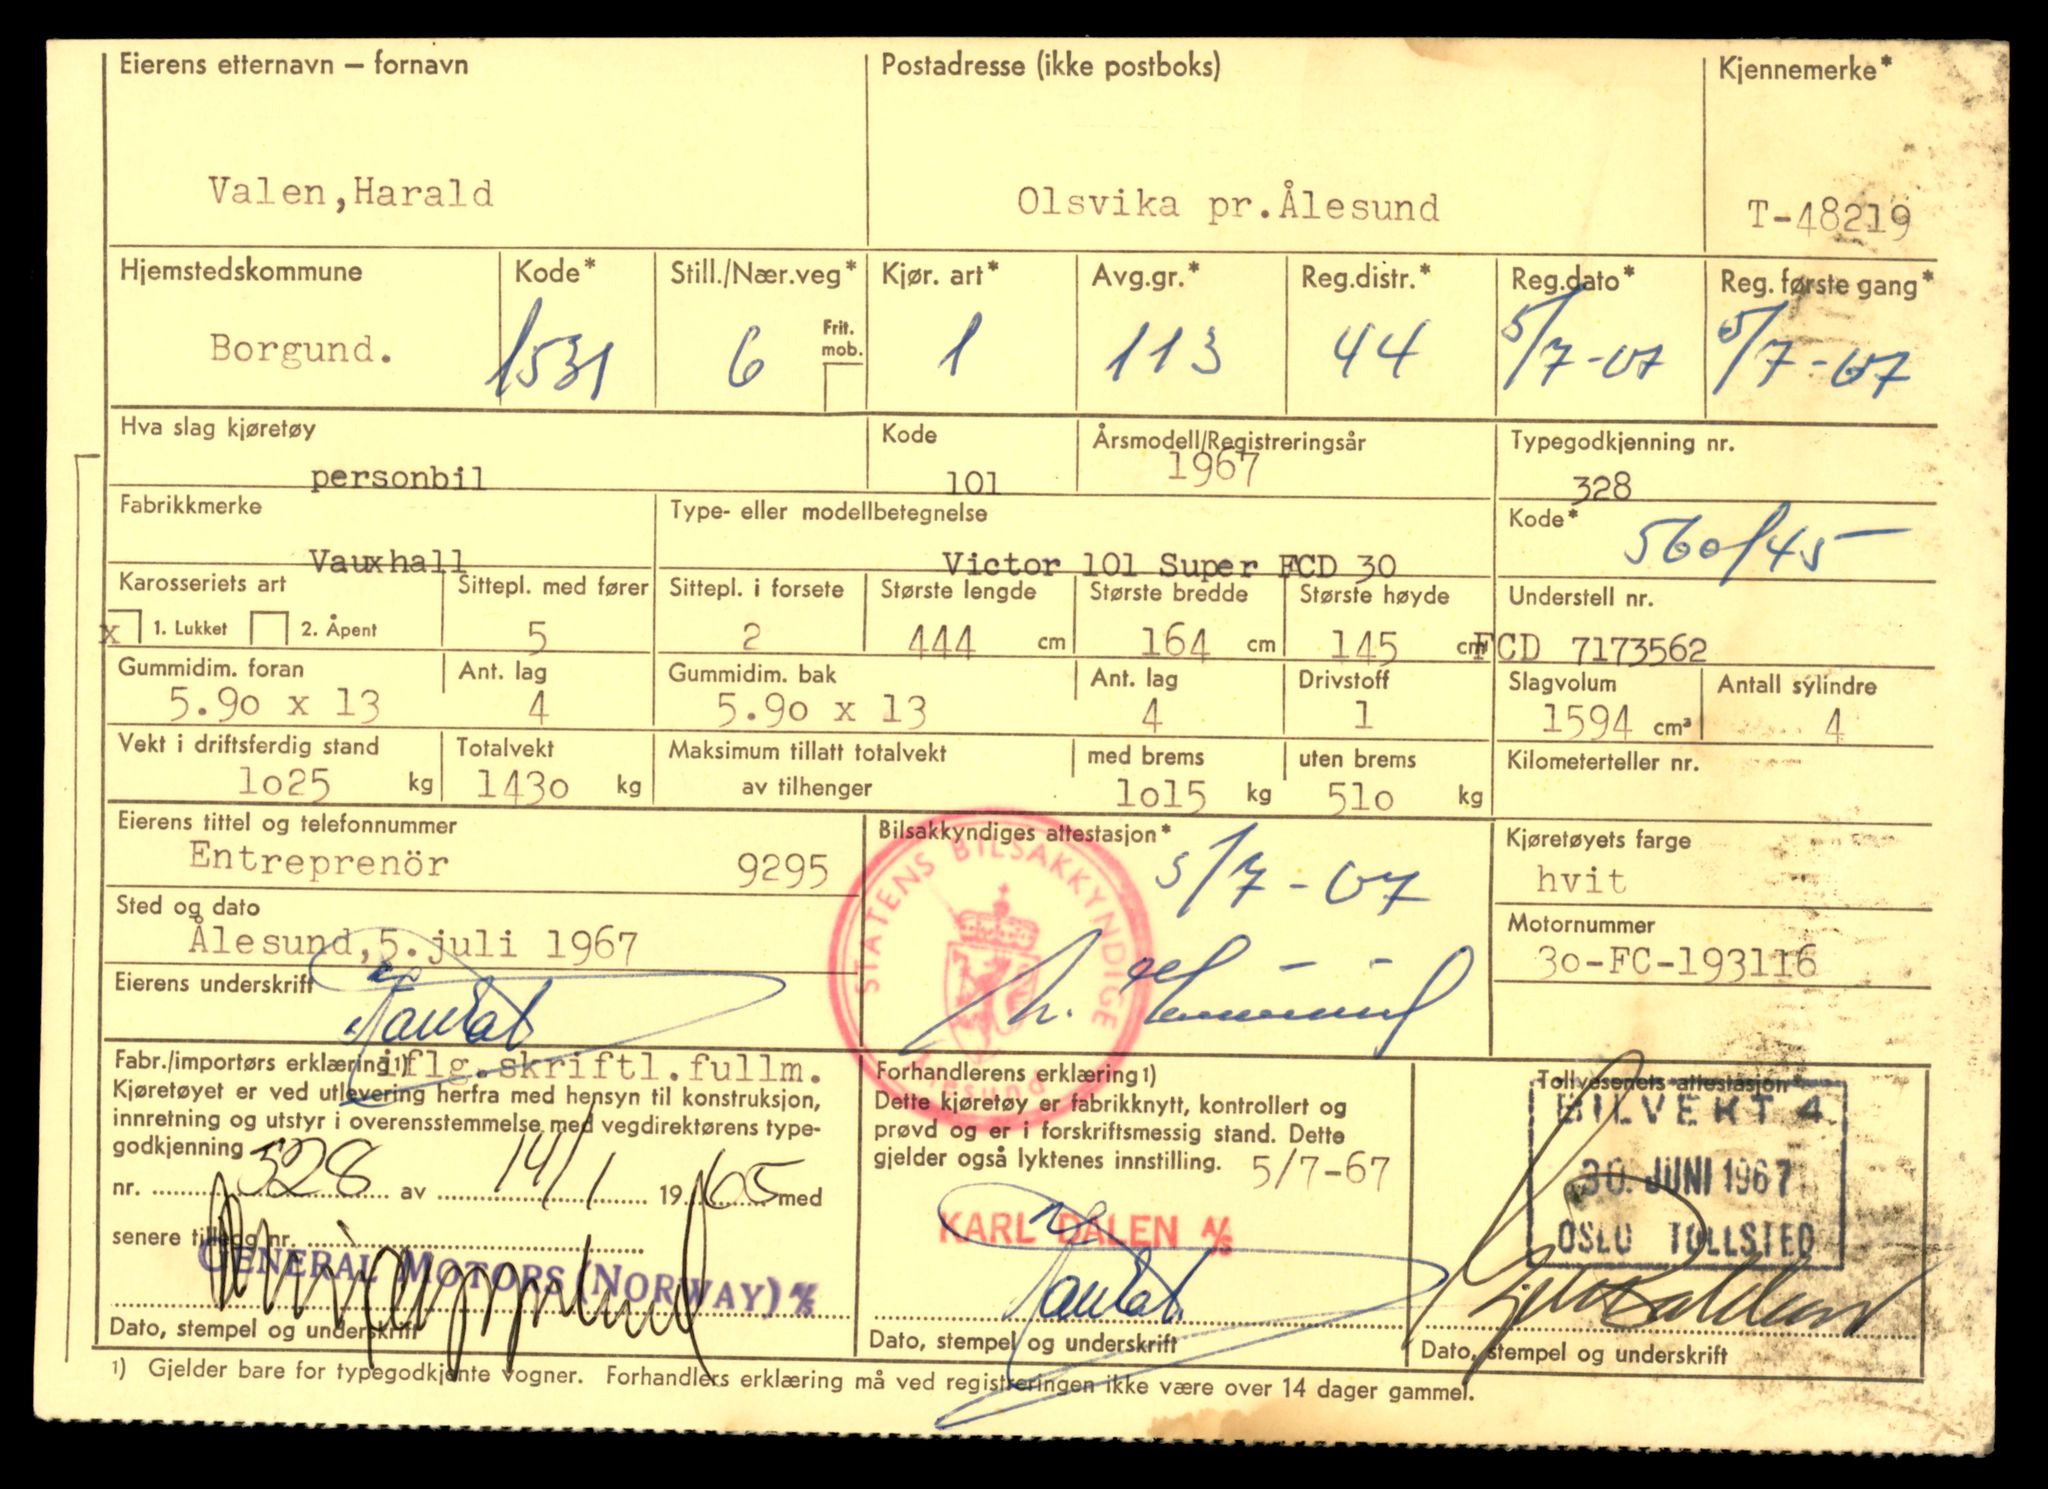 Eierens etternavn – fornavn
Postadresse (ikke postboks)
Kjennemerke*
Valen,Harald
Olsvika pr.Ålesund
T-48219
Hjemstedskommune
Kode*
Still./Nær.veg*
Kjør. art*
Avg.gr.*
Reg.distr.*
Reg.dato*
Reg. første gang*
Borgund.
1531
6
Frit. mob.
1
113
44
5/7-67
5/7-67
Hva slag kjøretøy
Kode
Årsmodell/Registreringsår
Typegodkjenning nr.
personbil
101
1967
328
Fabrikkmerke
Type- eller modellbetegnelse
Kode*
560/45
Vauxhall
Victor 101 Super FCD 30
Karosseriets art
Sittepl. med fører
Sittepl. i forsete
Største lengde
Største bredde
Største høyde
Understell nr.
x 1. Lukket 2. Åpent
5
2
444 cm
164 cm
145 cm
FCD 7173562
Gummidim. foran
Ant. lag
Gummidim. bak
Ant. lag
Drivstoff
Slagvolum
Antall sylindre
5.90 x 13
4
5.90 x 13
4
1
1594 cm³
4
Vekt i driftsferdig stand
Totalvekt
Maksimum tillatt totalvekt
med brems
uten brems
Kilometerteller nr.
1025 kg
1430 kg
av tilhenger
1015 kg
510 kg
Eierens tittel og telefonnummer
Bilsakkyndiges attestasjon*
Kjøretøyets farge
Entreprenör 9295
5/7-67
hvit
STATENS BILSAKKYNDIGE
Sted og dato
Motornummer
Ålesund,5.juli 1967
30-FC-193116
Eierens underskrift
Fabr./importørs erklæring 1)
iflg.skriftl.fullm.
Kjøretøyet er ved utlevering herfra med hensyn til konstruksjon,
innretning og utstyr i overensstemmelse med vegdirektørens type-
godkjenning
nr. 328 av 14/1 1965 med
senere tillegg nr.
GENERAL MOTORS (NORWAY) A/S
Dato, stempel og underskrift
Forhandlerens erklæring 1)
Dette kjøretøy er fabrikknytt, kontrollert og
prøvd og er i forskriftsmessig stand. Dette
gjelder også lyktenes innstilling. 5/7-67
KARL DALEN A/S
Dato, stempel og underskrift
Tollvesenets attestasjon*
BILVEKT 4
30. JUNI 1967
OSLO TOLLSTED
Dato, stempel og underskrift
1) Gjelder bare for typegodkjente vogner. Forhandlers erklæring må ved registreringen ikke være over 14 dager gammel.